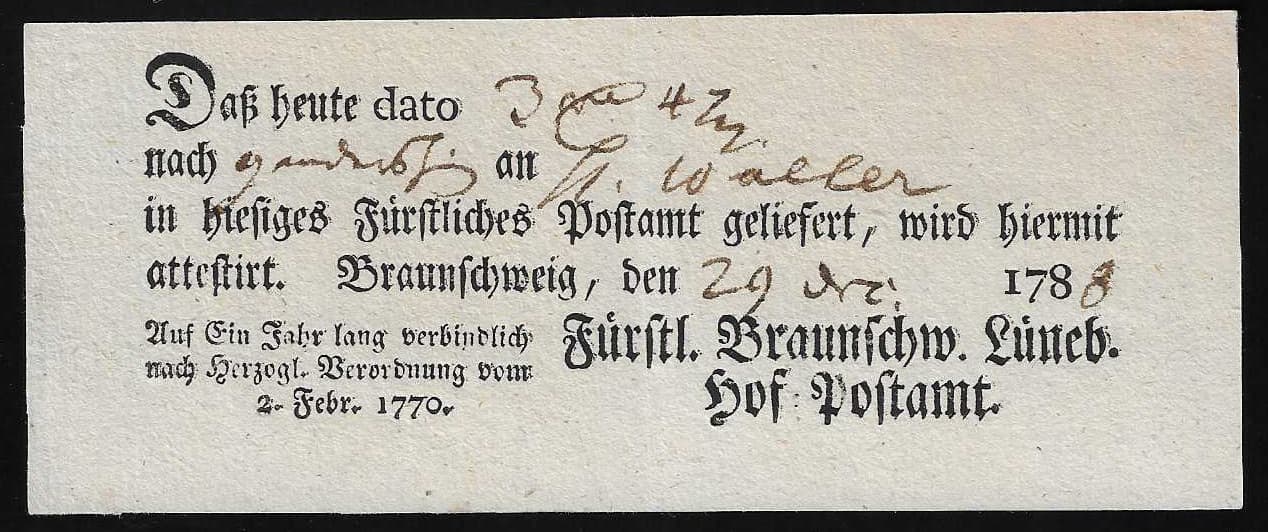 Daß heute dato 3
nach an H. Waller
in hiesiges Fürstliches Postamt geliefert, wird hiermit
attestirt. Braunschweig, den 29 Dec. 1788
Auf Ein Jahr lang verbindlich
nach Herzogl. Verordnung vom
2. Febr. 1770.
Fürstl. Braunschw. Lüneb.
Hof-Postamt.